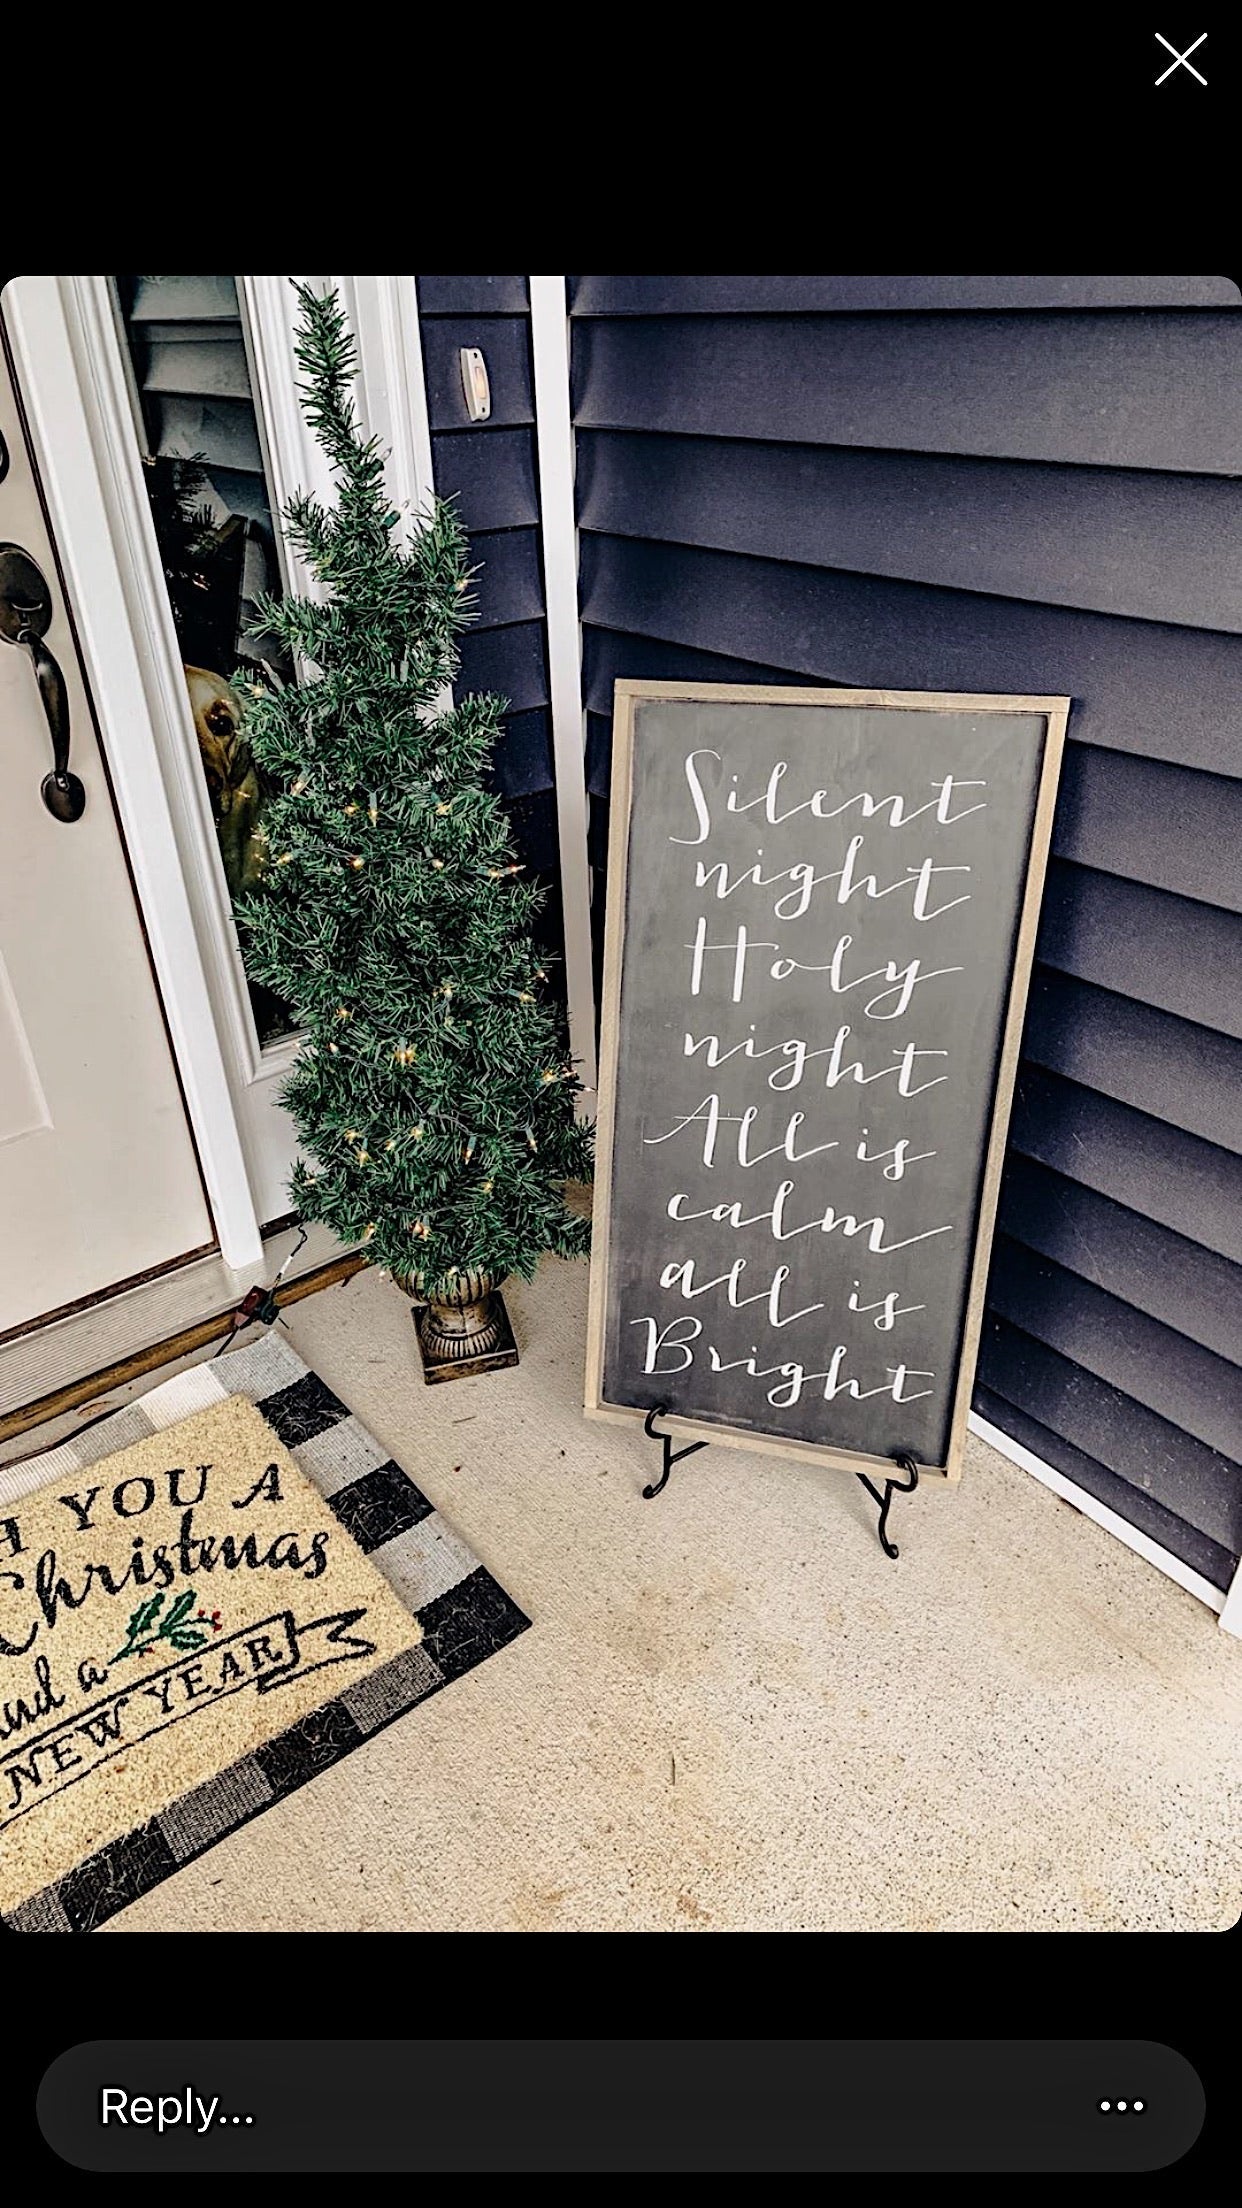 Silent
night
Holy
night
All is
calm
all is
Bright
H YOU A
Christmas
and a
NEW YEAR
Reply...